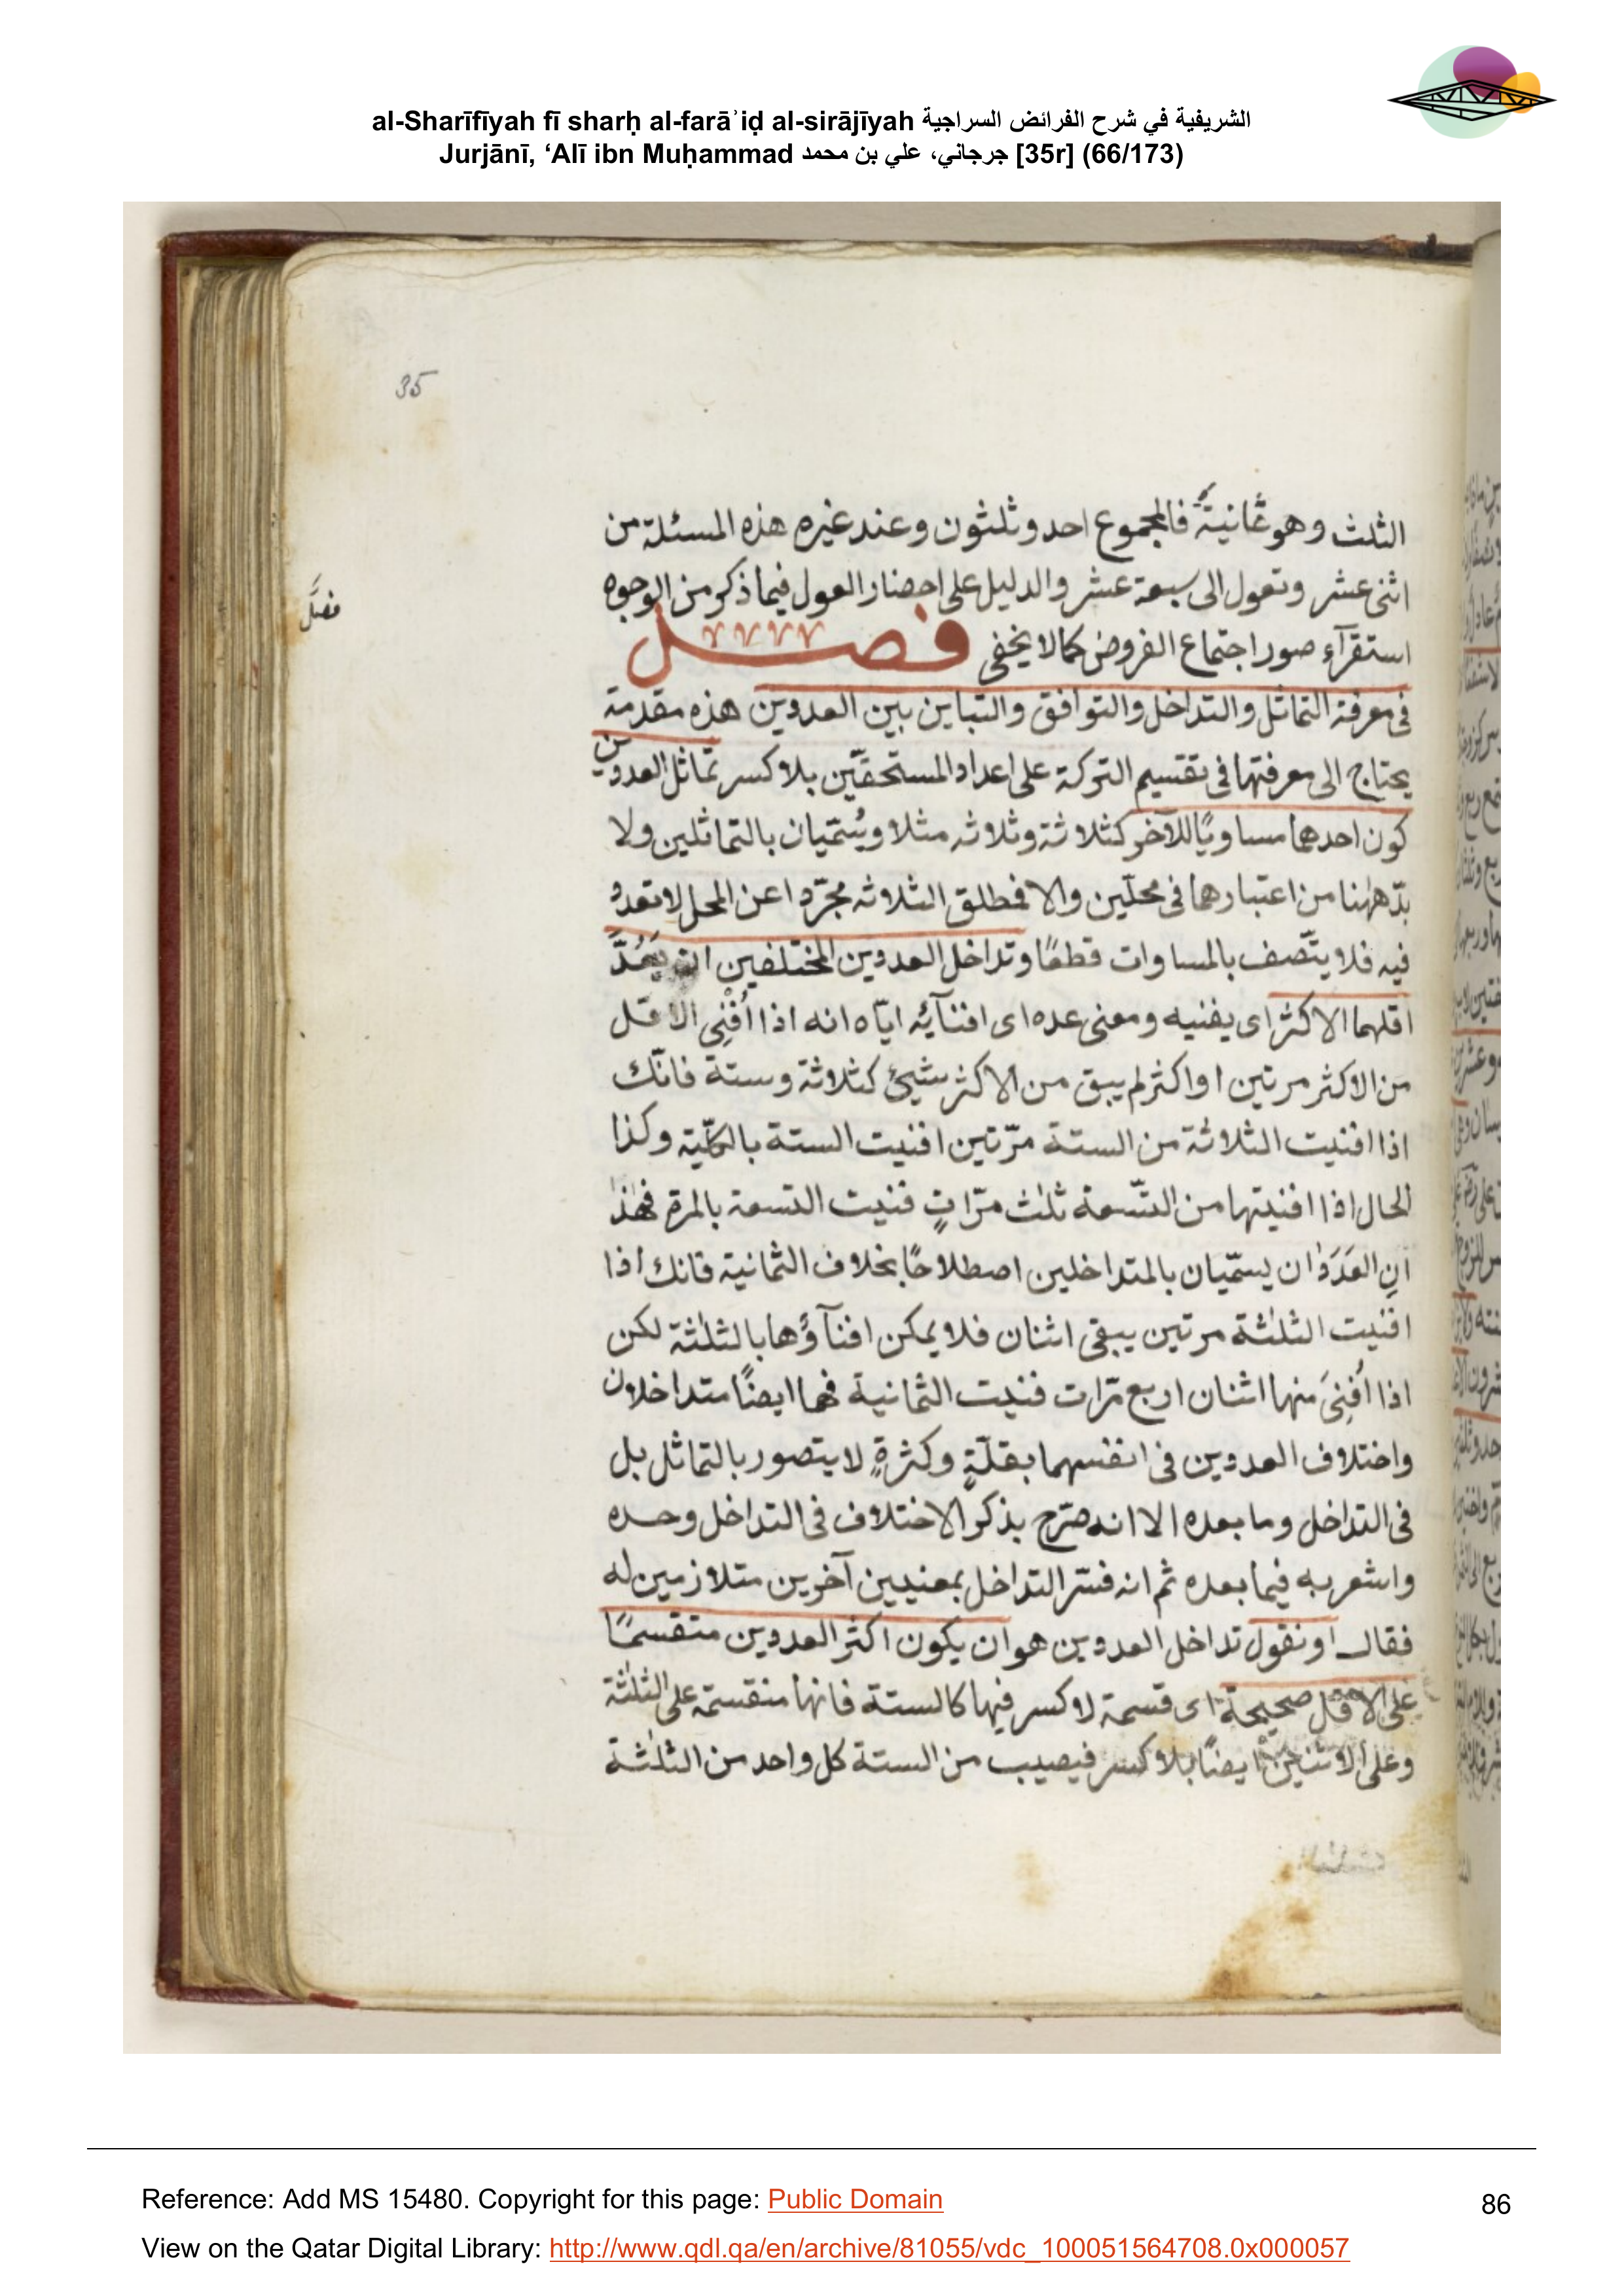 al-Sharīfīyah fī sharḥ al-farāʾiḍ al-sirājīyah الشريفية في شرح الفرائض السراجية
Jurjānī, ‘Alī ibn Muḥammad جرجاني، علي بن محمد [35r] (66/173)
35
الثلث وهو ثمانية فالمجموع احد وثلثون وعند غيره هذه المسئلة من
اثنى عشر وتعول الى سبعة عشر والدليل على احضار العول فيما ذكر من الوجوه
فصل
استقرآء صور اجتماع الفروض كما لا يخفى فصل
فى معرفة التماثل والتداخل والتوافق والتباين بين العددين هذه مقدمة
يحتاج الى معرفتها فى تقتسيم التركة على اعداد المستحقّين بلا كسر تماثل العددين
كون احدهما مساويًا للآخر كثلاثة وثلاثه مثلا ويُسَمّيان بالتماثلين ولا
بدّ ههٰنا من اعتبارهما فى محلّين والا فمطلق الثلاثه مجرّدا عن المحل لا تعدد
فيه فلا يتّصف بالمساوات قطعًا وتداخل العددين المختلفين ان يَعُدَّ
اقلهما الاكثر اى يفنيه ومعنى عده اى افنآئه ايّاه انه اذا اُفْنِى الاقل
من الاكثر مرتين او اكثر لم يبق من الاكثر شيئ كثلاثة وستة فانّك
اذا افنيت الثلاثة من الستة مرّتين افنيت الستة بالكلّية وكذا
الحال اذا افنيتها من التّسعة ثلٰث مرّاتٍ فنيت التسعة بالمرة فهٰذا
انِ العَدَدَان يسمّيان بالمتداخلين اصطلاحًا بخلاف الثمانية فانك اذا
افنيت الثلٰثة مرتين يبقى اثنان فلا يمكن افنآؤها بالثلٰثة لكن
اذا اُفنِىَ منها اثنان اربع مرّات فنيت الثمانية فهما ايضًا متداخلان
واختلاف العددين فى انفسهما بقلّةٍ وكثرةٍ لا يتصور بالتماثل بل
فى التداخل وما بعده الا انه صرّح بذكر الاختلاف فى التداخل وحده
واشعر به فيما بعده ثم انه فسّر التداخل بمعنيين آخرين متلازمين له
فقال او نقول تداخل العددين هو ان يكون اكثر العددين منقسمًا
على الاقل صحيحة اى قسمة لا كسر فيها كالستة فانها منقسمة على الثلٰثة
وعلى الاثنين ايضًا بلا كسر فيصيب من الستة كل واحد من الثلٰثة
Reference: Add MS 15480. Copyright for this page: Public Domain
86
View on the Qatar Digital Library: http://www.qdl.qa/en/archive/81055/vdc_100051564708.0x000057